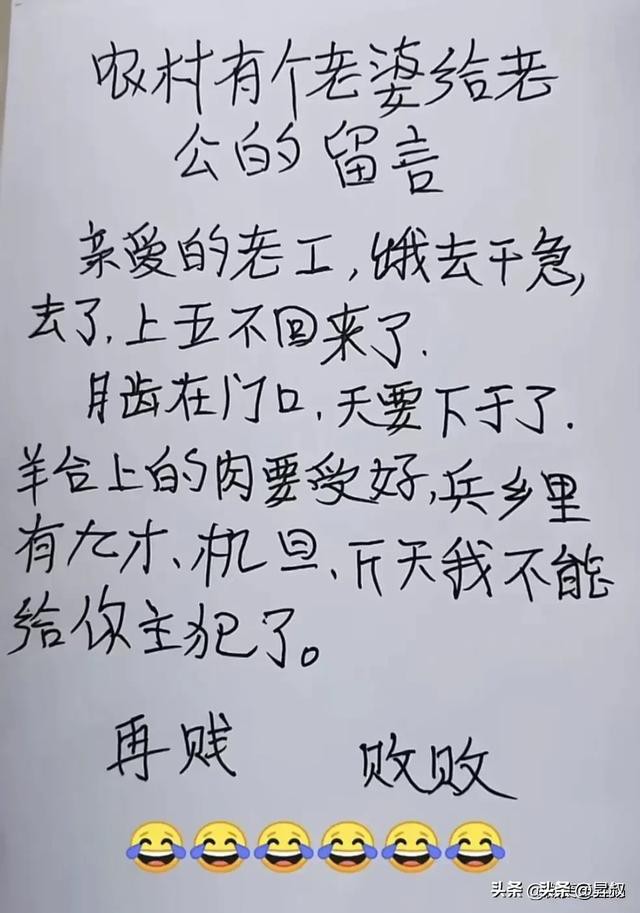 农村有个老婆给老
公的留言
亲爱的老工，蛾去干急,
去了.上五不回来了.
月齿在门口.天要下于了.
羊台上的肉要受好,兵乡里
有九才、机旦、斤天我不能
给你主犯了。
再贱 败败
头条 @昙叔